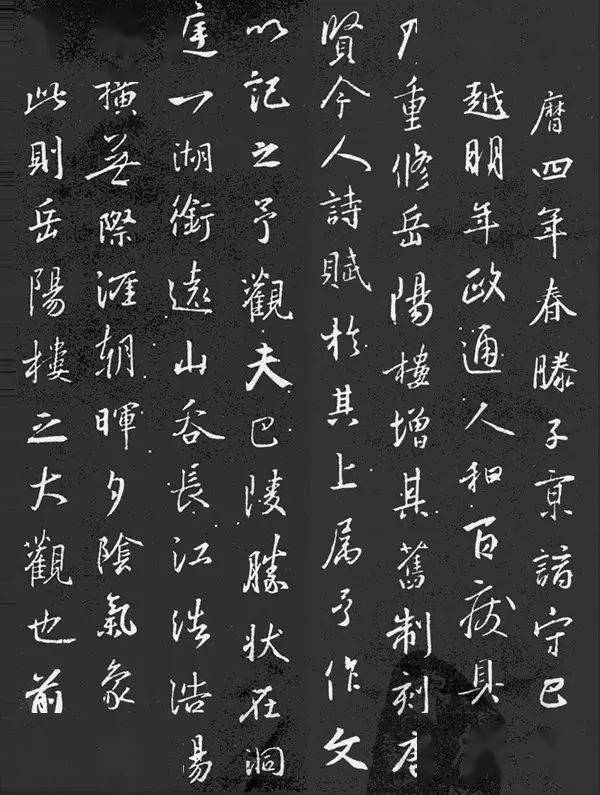 曆四年春滕子京謫守巴
越明年政通人和百廢具
乃重修岳陽樓增其舊制刻唐
賢今人詩賦於其上属予作文
以記之予觀夫巴陵勝狀在洞
庭一湖銜遠山吞長江浩浩湯
橫無際涯朝暉夕陰氣象
此則岳陽樓之大觀也前